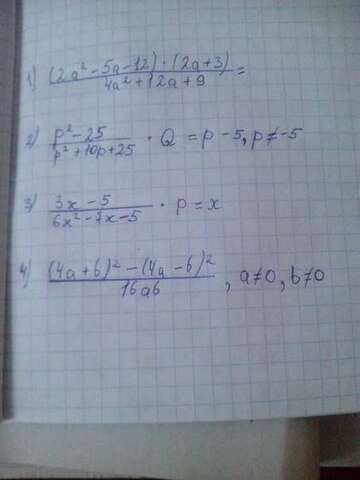 1) (2a² - 5a - 12) · (2a + 3) / 4a² + 12a + 9 =
2) p² - 25 / p² + 10p + 25 · Q = p - 5, p ≠ -5
3) 3x - 5 / 6x² - 7x - 5 · P = x
4) (4a + 6)² - (4a - 6)² / 16ab , a ≠ 0, b ≠ 0